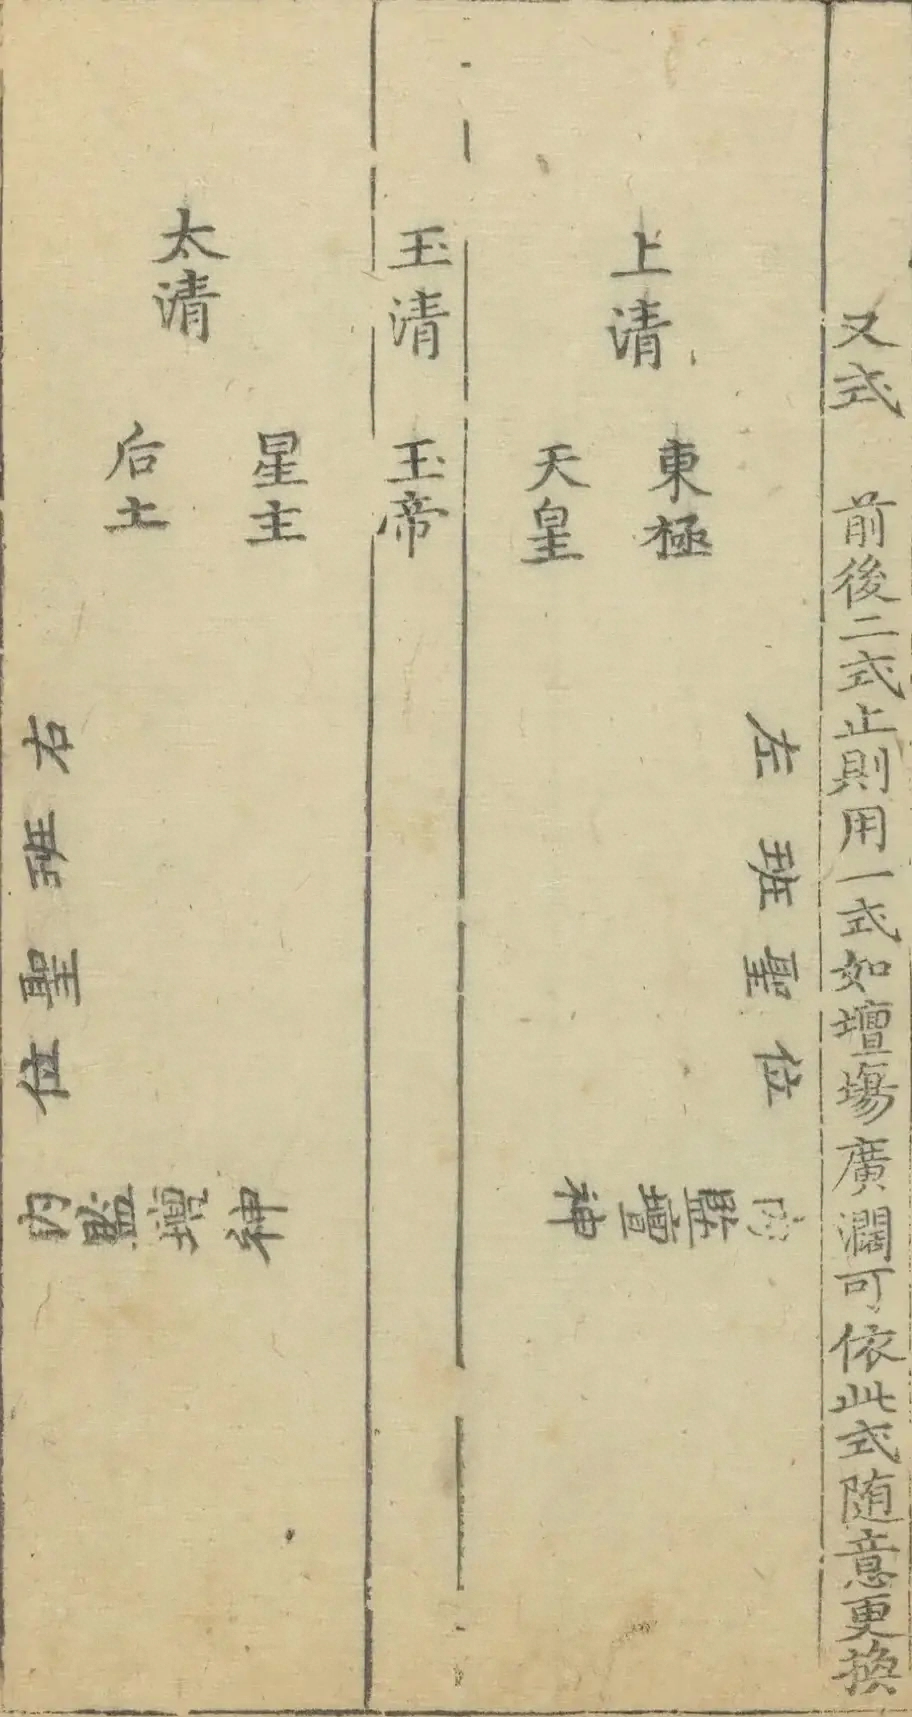 又式　前後二式止則用一式如壇場廣濶可依此式随意更換
上清
東極
天皇
左班聖位
内監壇神
玉清
玉帝
太清
星主
后土
右班聖位
内監壇神